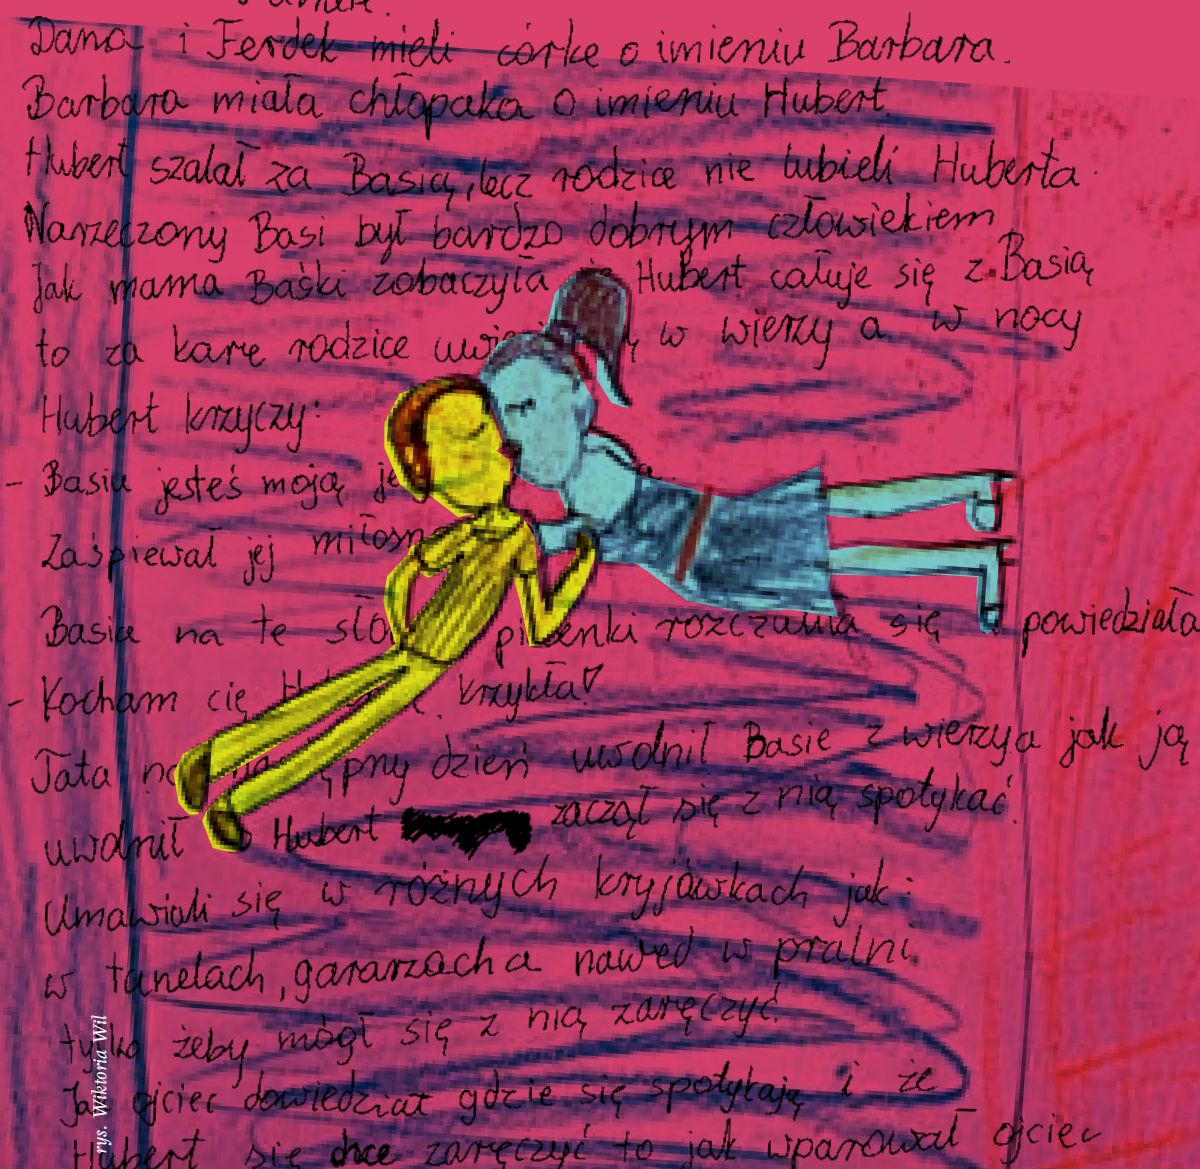 Dana i Ferdek mieli córke o imieniu Barbara.
Barbara miała chłopaka o imieniu Hubert.
Hubert szalał za Basią, lecz rodzice nie lubieli Huberta.
Narzeczony Basi był bardzo dobrym człowiekiem
Jak mama Baśki zobaczyła Hubert całuje się z Basią
to za karę rodzice w wierzy a w nocy
Hubert krzyczy:
- Basiu jesteś moją
Zaśpiewał jej
Basia na te rozczuliła się powiedziała
- Kocham cię krzykła!
Tata dzień uwolnił Basie z wierzy a jak ją
uwolnił Hubert zaczął się z nią spotykać.
Umawiali się w różnych kryjówkach jak:
w tunelach, gararzach a nawed w pralni.
tylko żeby mógł się z nią zaręczyć.
ojciec dowiedział gdzie się spotykają i że
Hubert się chce zaręczyć to jak wparował ojciec
rys. Wiktoria Wil